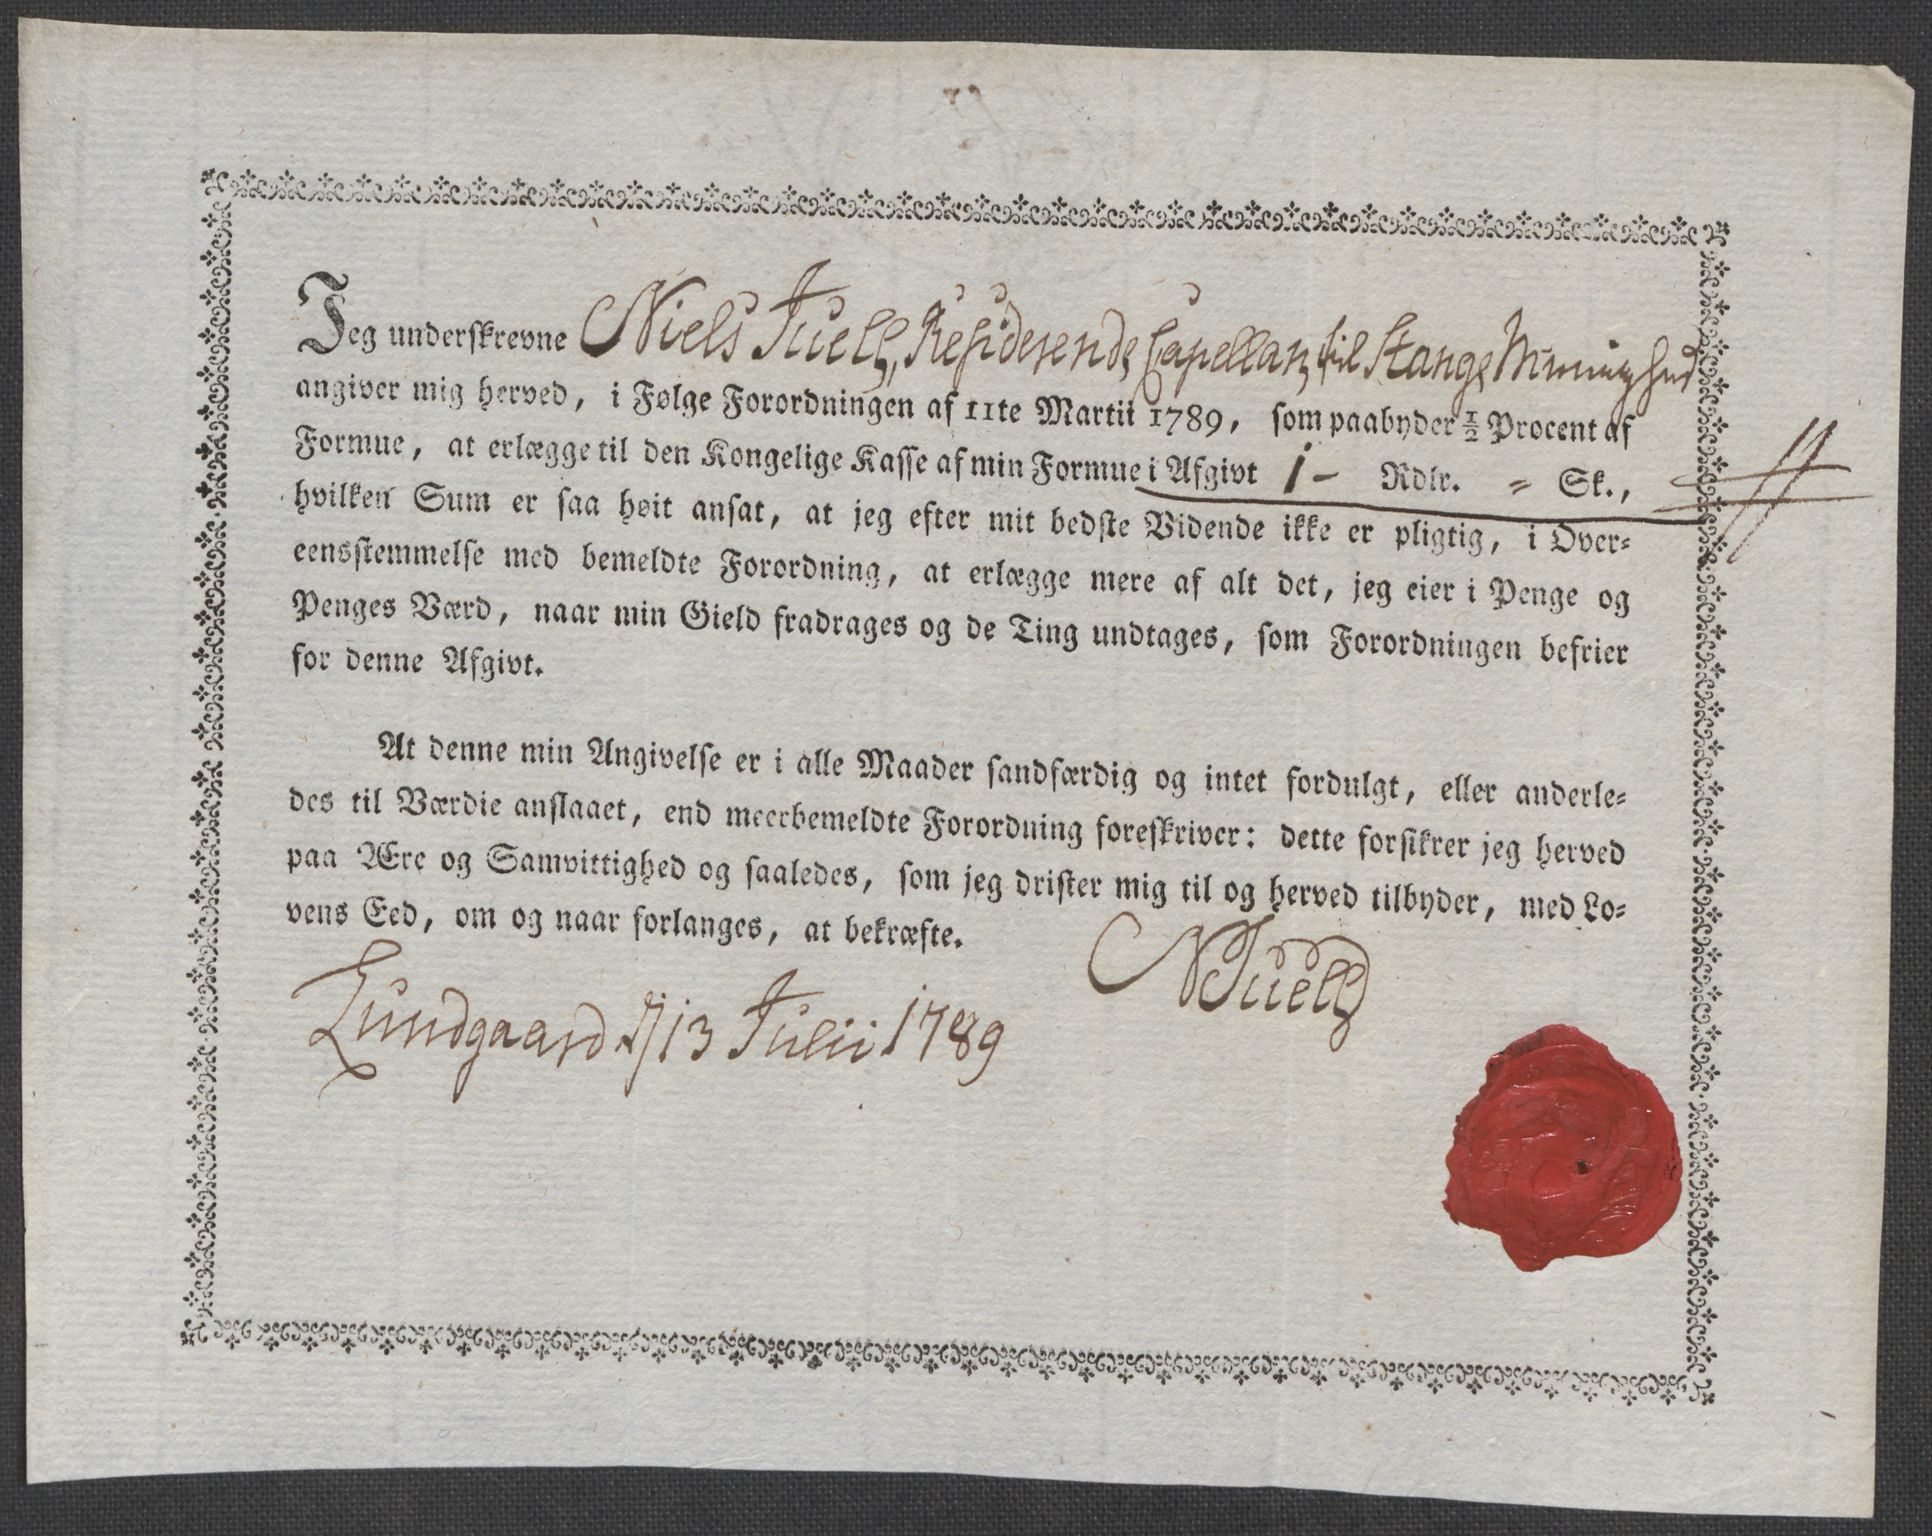 Jeg underskrevne Niels Juell, Residerende Capellan til Stange Menighed
angiver mig herved, i Følge Forordningen af 11te Martii 1789, som paabyder ½ Procent af
Formue, at erlægge til den Kongelige Kasse af min Formue i Afgivt 1 - Rdlr. = Sk.,
hvilken Sum er saa høit ansat, at jeg efter mit bedste Vidende ikke er pligtig, i Over=
eensstemmelse med bemeldte Forordning, at erlægge mere af alt det, jeg eier i Penge og
Penges Værd, naar min Gield fradrages og de Ting undtages, som Forordningen befrier
for denne Afgivt.
At denne min Angivelse er i alle Maader sandfærdig og intet fordulgt, eller anderle=
des til Værdie anslaaet, end meerbemeldte Forordning foreskriver: dette forsikrer jeg herved
paa Ære og Samvittighed og saaledes, som jeg drister mig til og herved tilbyder, med Lo=
vens Eed, om og naar forlanges, at bekræfte.
NJuell
Lundgaard d 13 Julii 1789